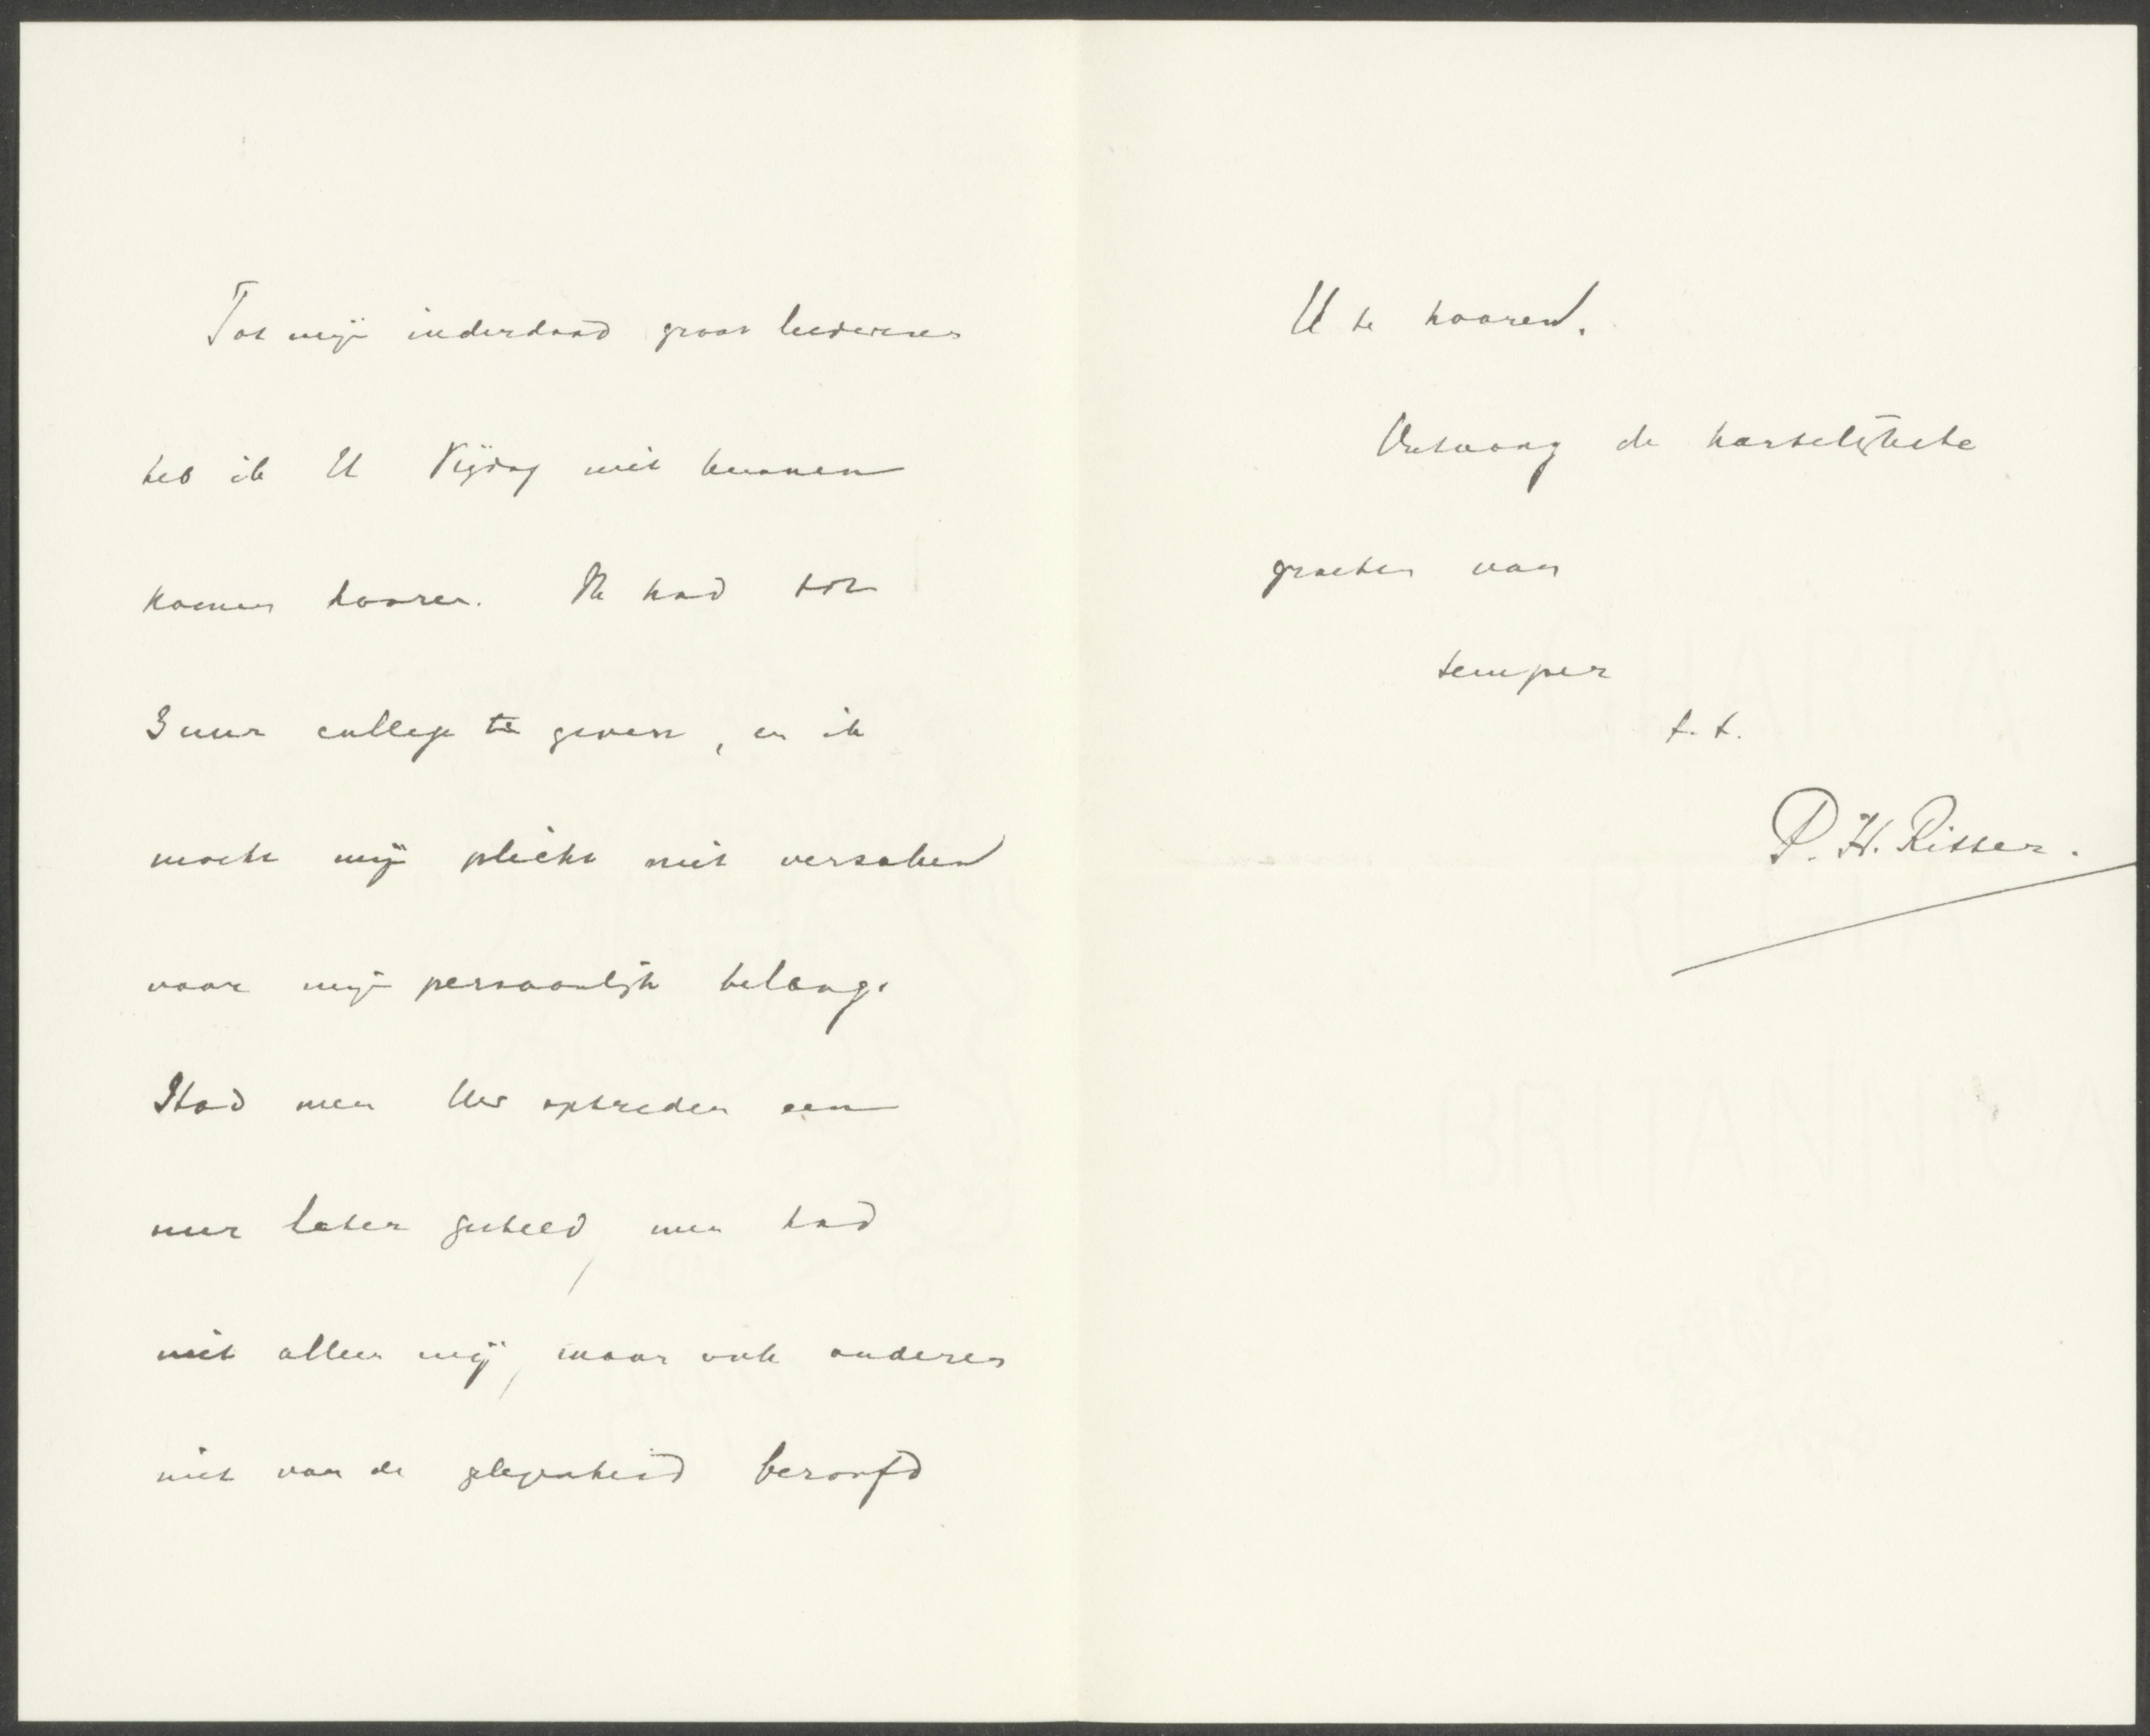 Tot mijn inderdaad groot leedwezen
heb ik U Vrijdag niet kunnen
komen hooren. Ik had tot
3 uur college te geven, en ik
mocht mijn plicht niet verzaken
voor mijn persoonlijk belang.
Had men Uw optreden een
uur later gesteld, men had
niet alleen mij, maar ook anderen
niet van de gelegenheid beroofd
U te hooren.
Ontvang de hartelijkste
groeten van
semper
t. t.
P. H. Ritter.